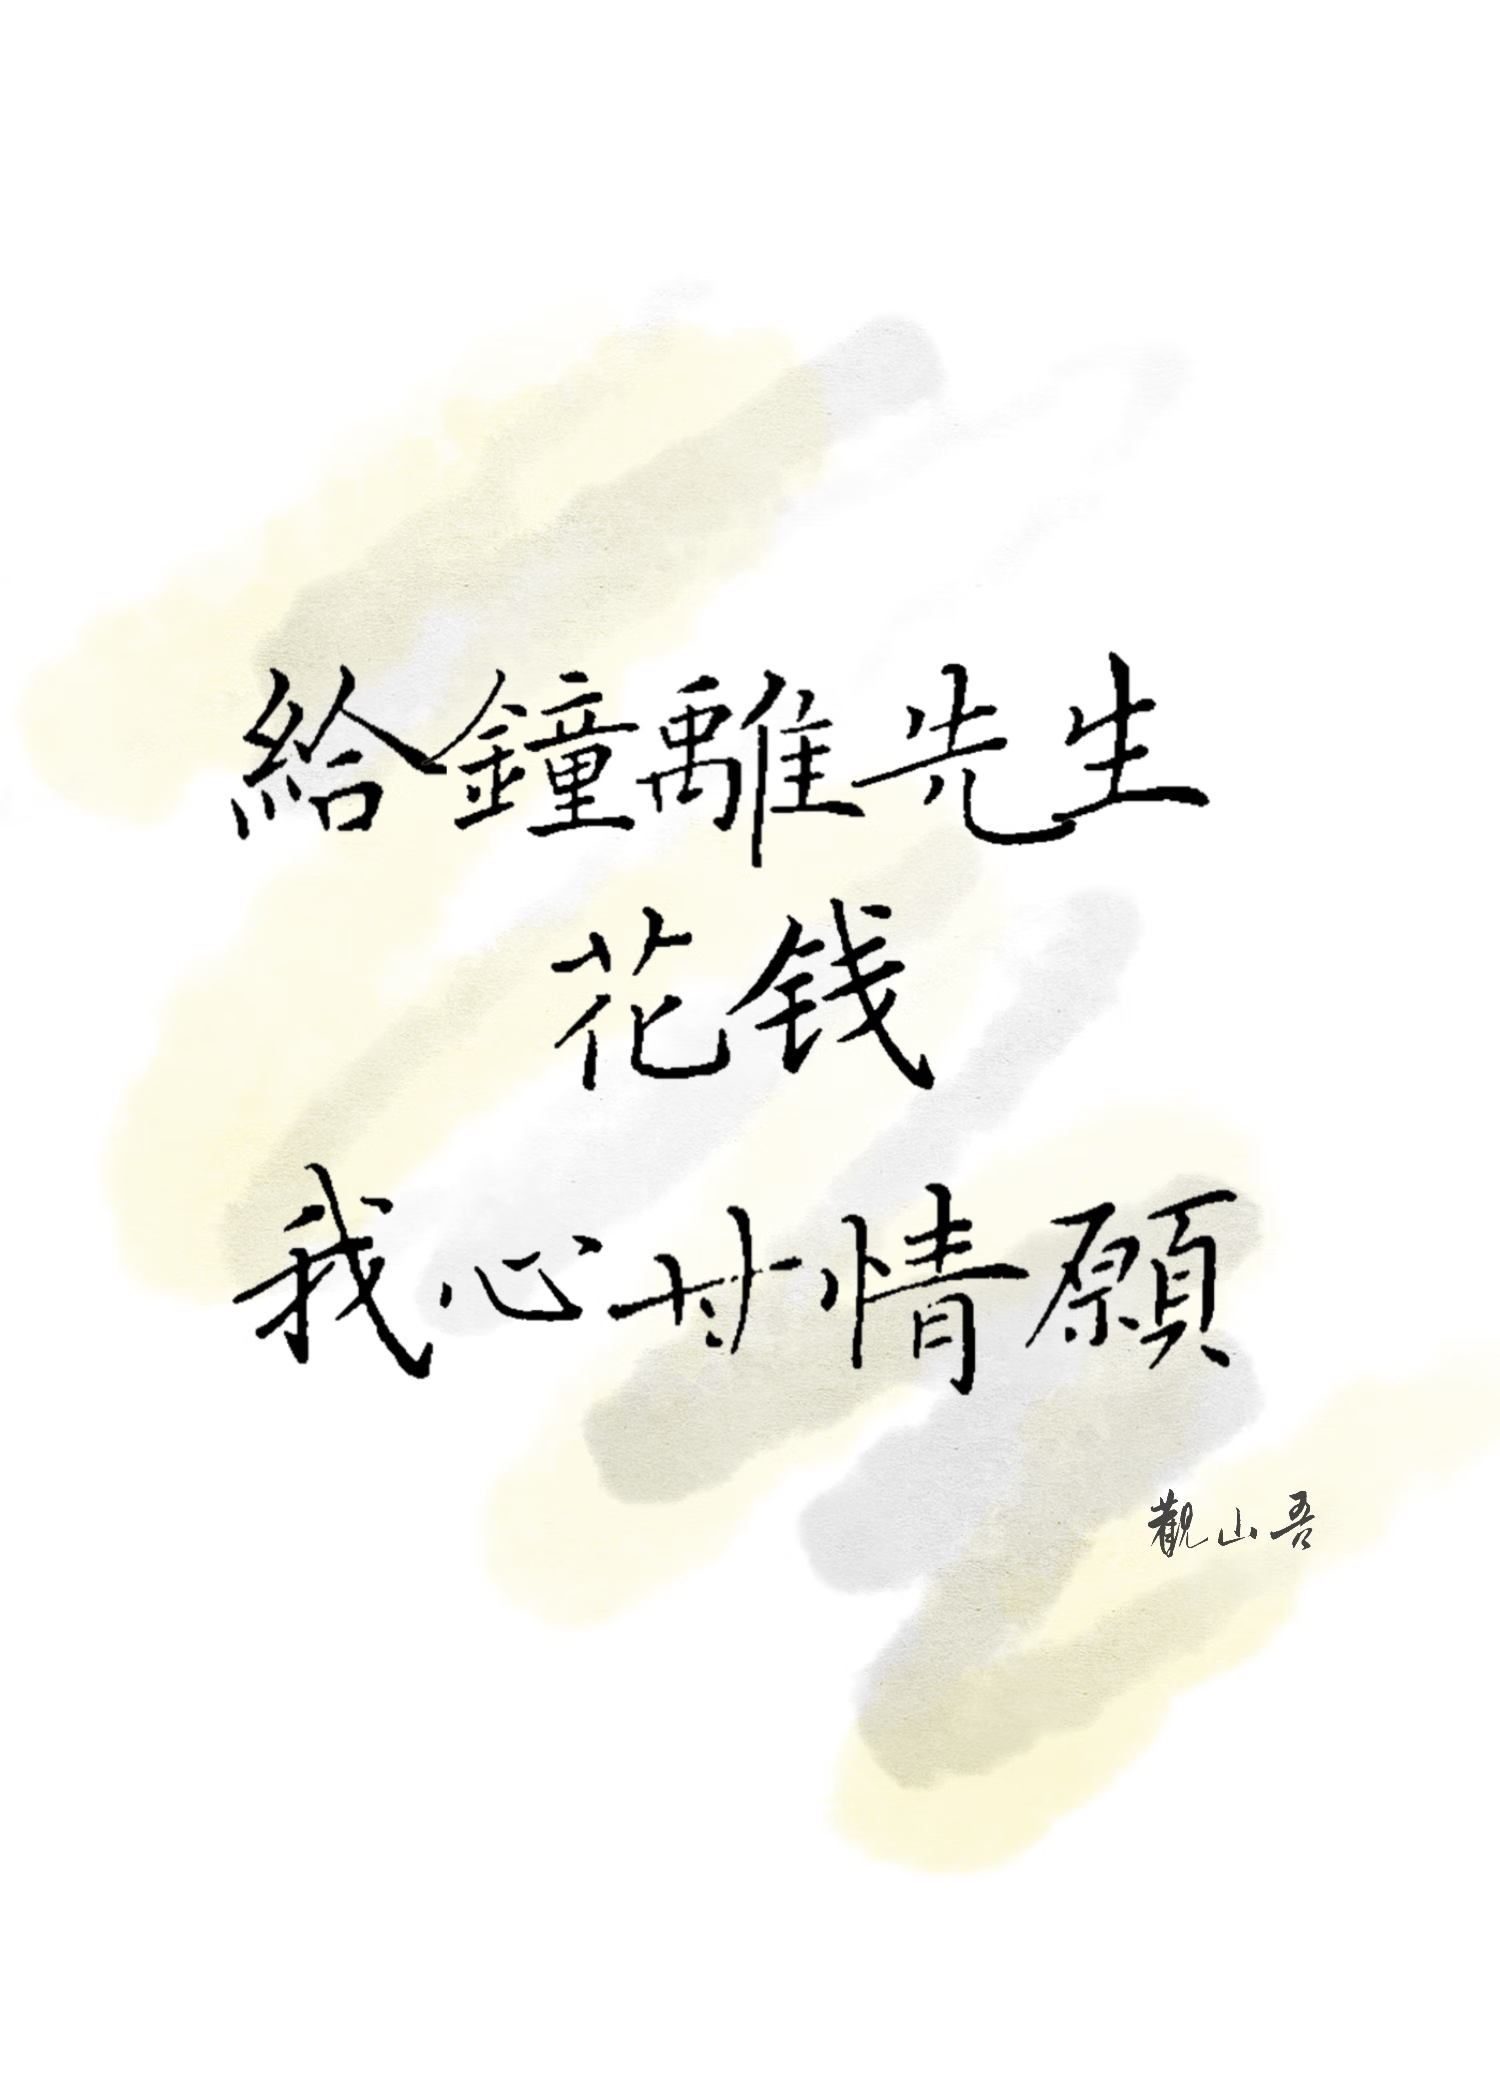 給鐘離先生
花钱
我心甘情願
觀山吾